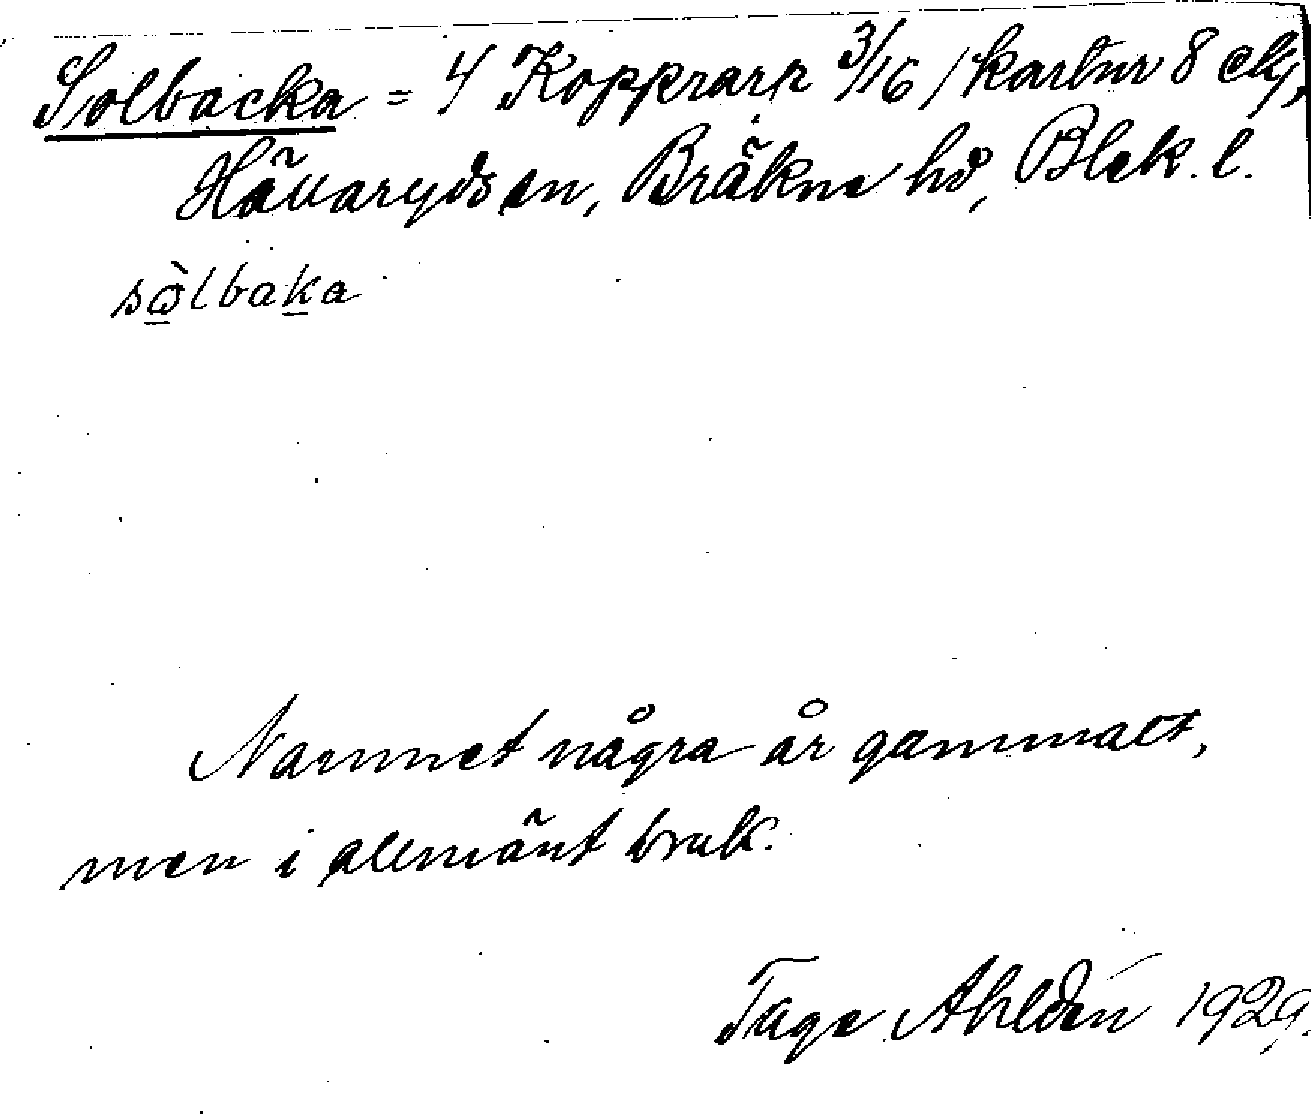 Solbacka = 4 Kopprarp 3/16 / kartnr 8 ck,
Hävaryds sn, Bräkne hd, Blek. l.
sòlbaka
Namnet några år gammalt,
men i allmänt bruk.
Tage Ahldén 1929.